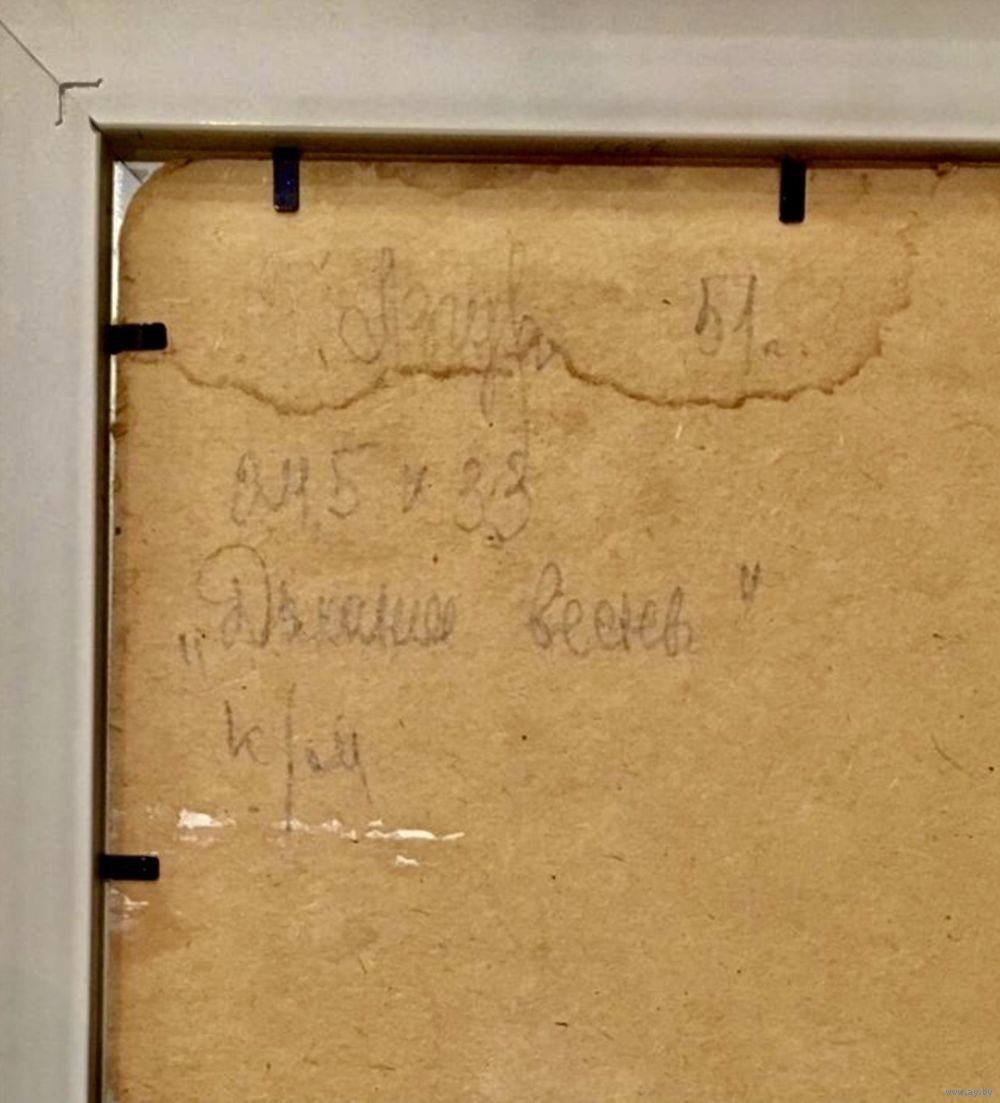 51г.
24,5 x 33
„Дыхание весны"
к/м
www.ay.by